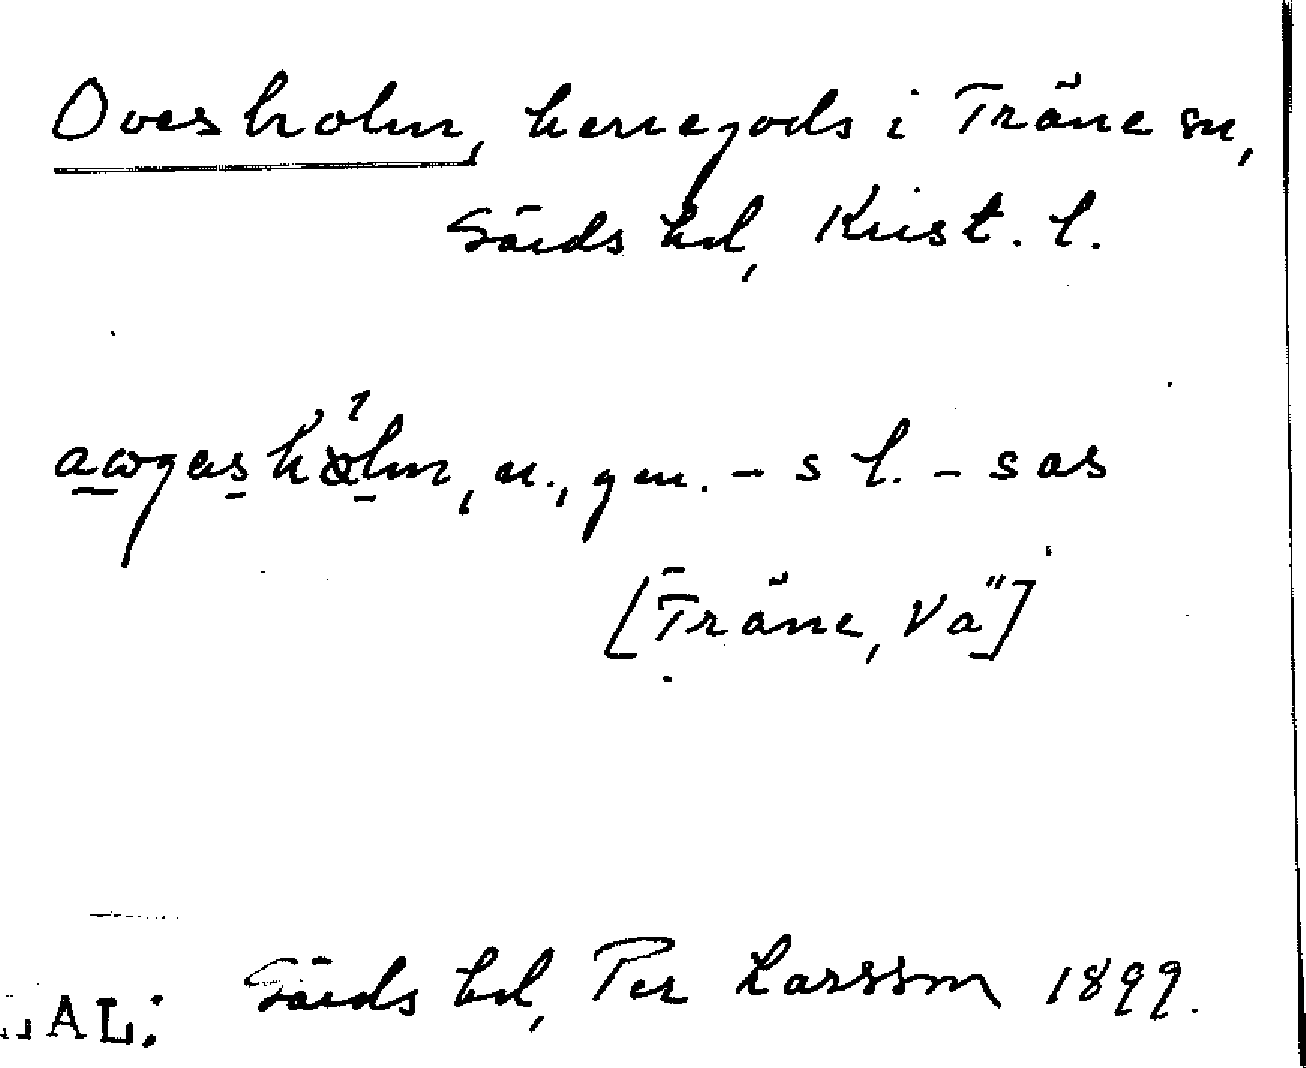 Ovesholm, herregods i Träne sn,
Gärds hd, Krist. l.
n., gen. -s l. -sas
[Träne, Vä]
LAL: Gärds hd, Per Larsson 1899.